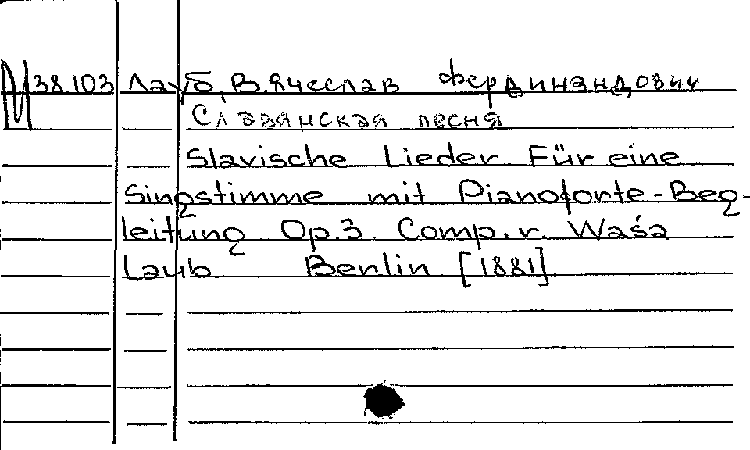 М 38.103 Лауб, Вячеслав Фердинандович
Славянская песня
Slavische Lieder Für eine
Singstimme mit Pianoforte-Beg-
leitung Op.3 Comp. v. Waśa
Laub Berlin [1881]